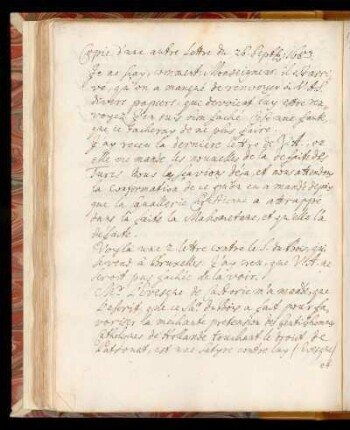 Copie d'une autre lettre du 26 Septb. 1683.
Je ne sçay, comment, Monseigneur, il est arri-
vé, qu'on a manqué de renvoyer à V.A.S.
d'autre papiers, que devoient luy estre ren-
voyez. J'en suis bien faché. C'est une faute,
que je tacheray de ne plus faire.
J'ay receu la derniere lettre de V.A. où
elle me mande les nouvelles de la defaite des
Turcs. Nous la scavions deja, et nous attendons
la confirmation de ce qu'on en a mandé depuis
que la Cavallerie Chrétienne a attrappé
dans la fuite la Mahometane, et qu'elle l'a
defaite.
Voyla une 2. lettre contre le S. du Bois, qui
se vend à Bruxelles. J'ay creu, que V.A. ne
seroit pas fachée de la voir.
Mr. L'Evesque de Castorie m'a mandé, que
l'escrit, que ce Mr. du Bois a fait pour fa-
voriser la mechante pretension des Gentilshommes
Catholiques de Hollande touchant le droit de
Patronat, est une satyre contre luy (Evesque)
et